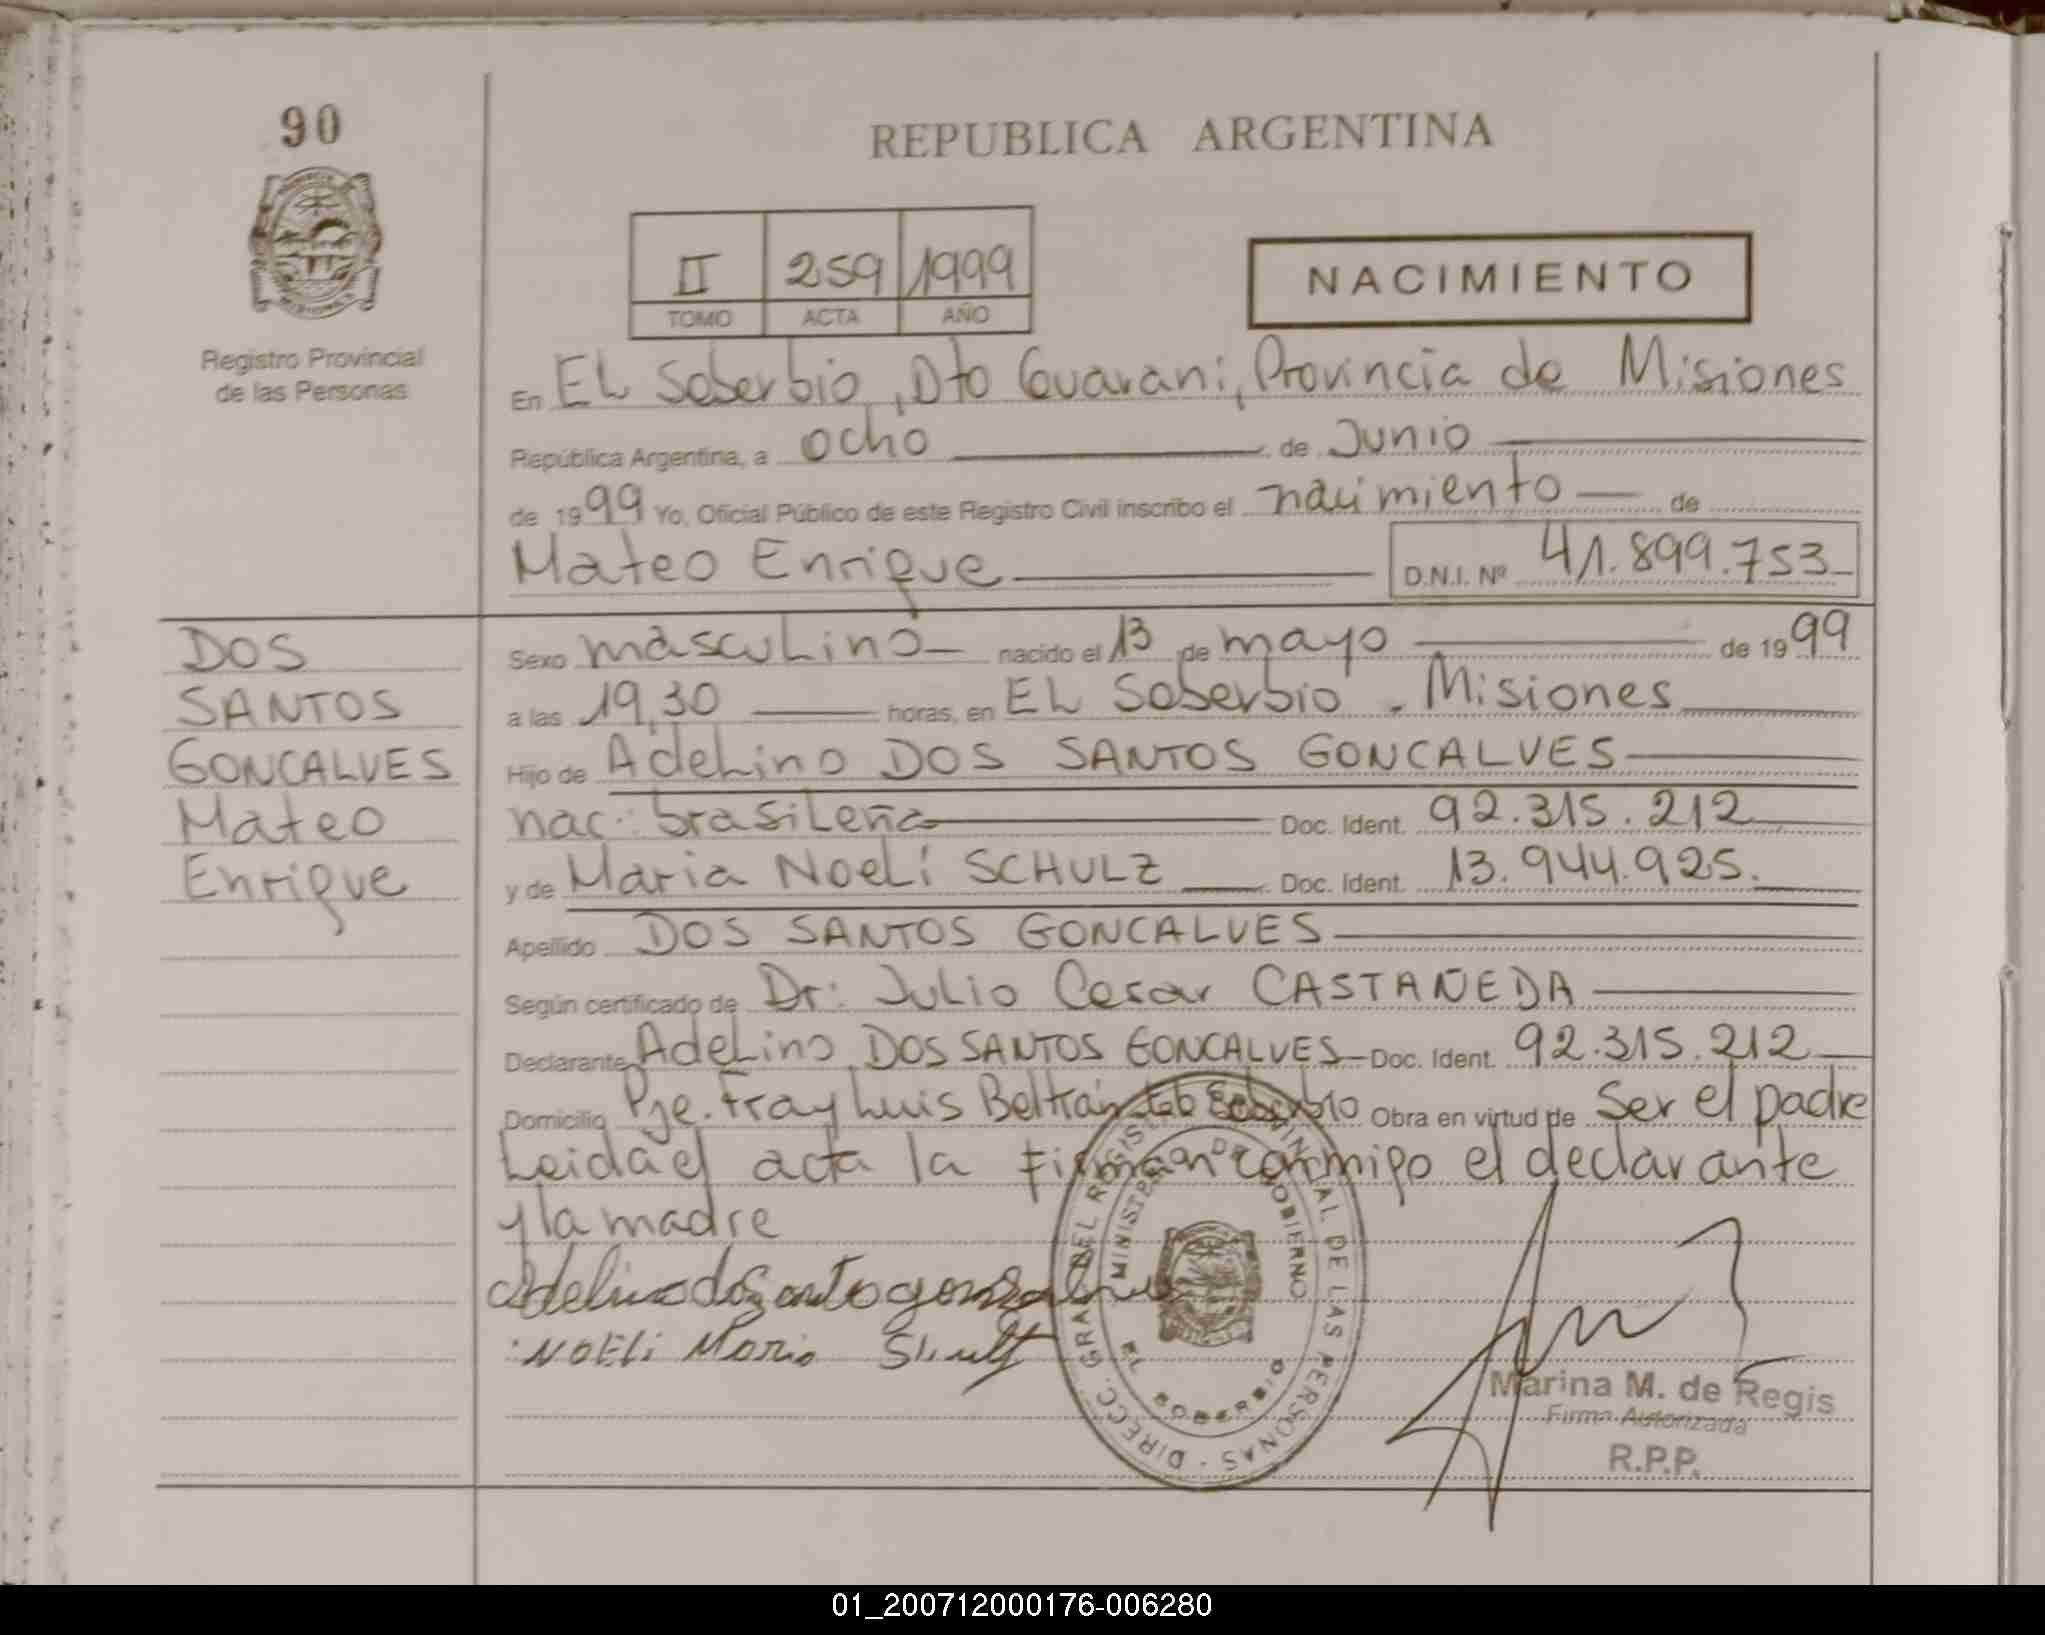 90
REPUBLICA ARGENTINA
II 259 1999
TOMO ACTA AÑO
NACIMIENTO
Registro Provincial
de las Personas
En EL Soberbio, Dto Guarani, Provincia de Misiones
República Argentina, a ocho de Junio
de 1999 Yo, Oficial Público de este Registro Civil inscribo el nacimiento de
Mateo Enrique D.N.I. Nº 41.899.753
DOS
SANTOS
GONCALVES
Mateo
Enrique
Sexo masculino nacido el 13 de mayo de 1999
a las 19,30 horas, en EL Soberbio - Misiones
Hijo de Adelino DOS SANTOS GONCALVES
nac: brasileña Doc. Ident. 92.315.212
y de Maria Noelí SCHULZ Doc. Ident. 13.944.925.
Apellido DOS SANTOS GONCALVES
Según certificado de Dr: Julio Cesar CASTAÑEDA
Declarante Adelino DOS SANTOS GONCALVES Doc. Ident. 92.315.212
Domicilio Pje. Fray Luis Beltrán Soberbio Obra en virtud de Ser el padre
Leida el acta la firman conmigo el declarante
y la madre
Adelino dos santo
NOELi Maria
DIRECC. GRAL. DEL REGISTRO PROVINCIAL DE LAS PERSONAS
MINISTERIO DE GOBIERNO
EL SOBERBIO
Marina M. de Regis
Firma Autorizada
R.P.P.
01_200712000176-006280